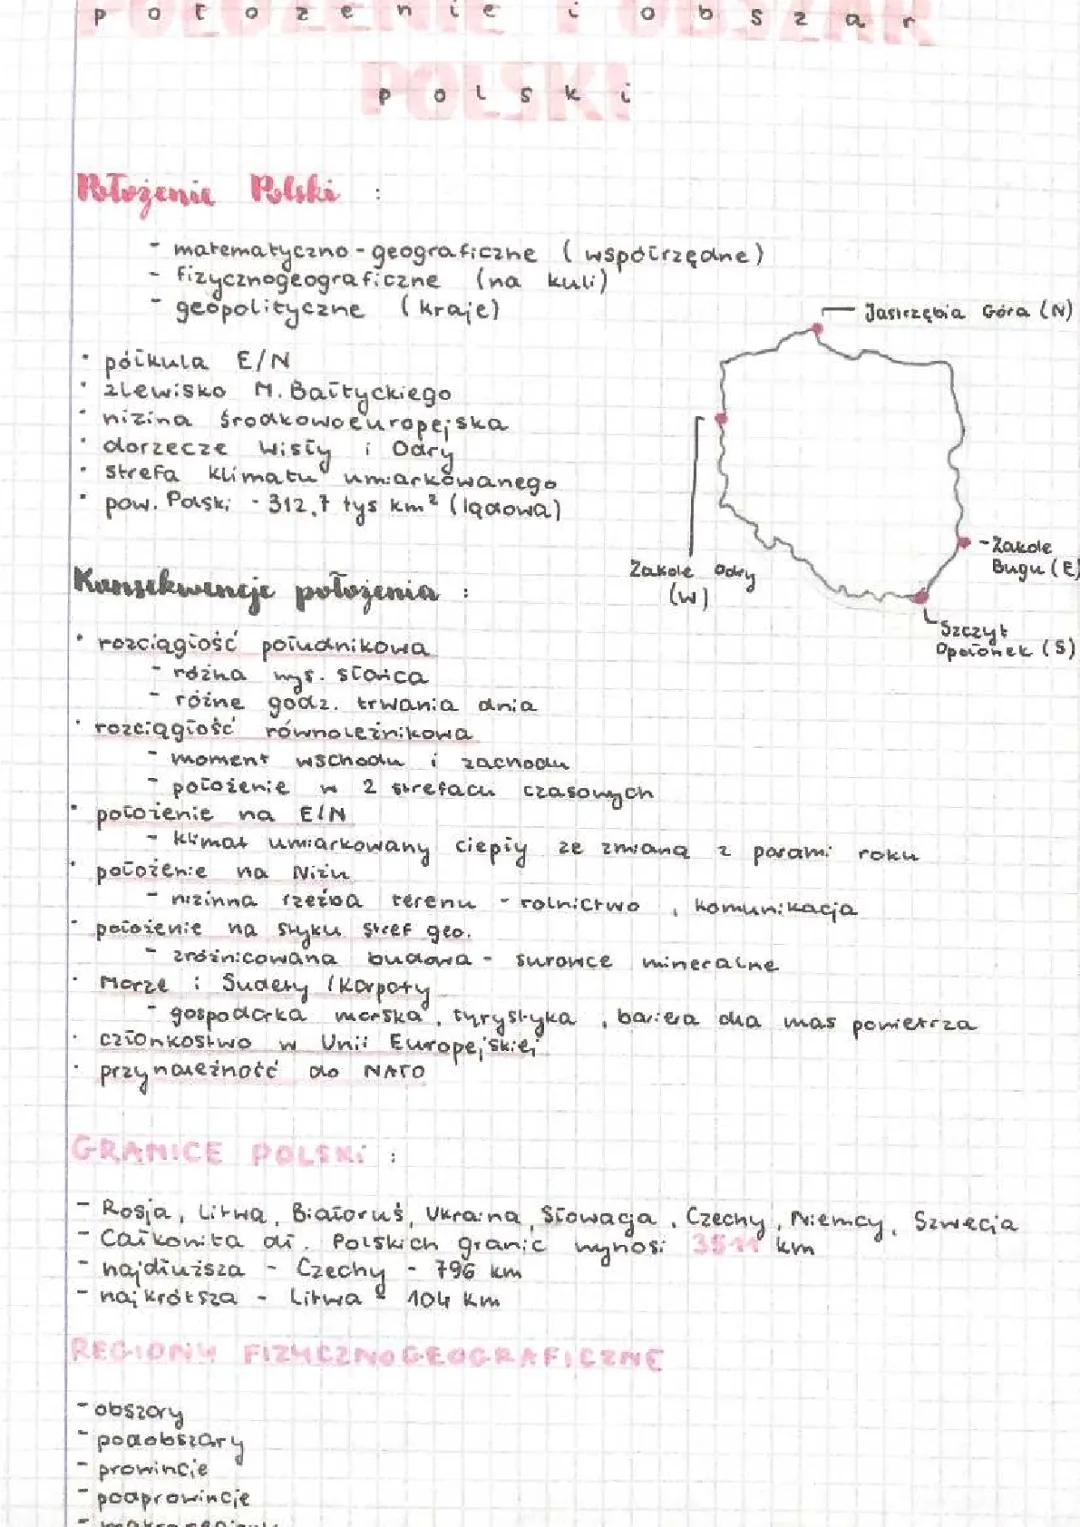 POŁOŻENIE I OBSZAR
położenie i obszar
POLSKI
polski
Położenie Polski :
- matematyczno - geograficzne ( współrzędne)
- fizycznogeograficzne (na kuli)
- geopolityczne ( kraje)
Jastrzębia Góra (N)
• półkula E/N
• zlewisko M. Bałtyckiego
• nizina środkowoeuropejska
• dorzecze Wisły i Odry
• strefa klimatu umiarkowanego
• pow. Polski - 312,7 tys km² (lądowa)
- Zakole
Bugu (E)
Zakole Odry
(W)
Szczyt
Opołonek (S)
Konsekwencje położenia :
• rozciągłość południkowa
- różna wys. słońca
- różne godz. trwania dnia
• rozciągłość równoleżnikowa
- moment wschodu i zachodu
- położenie w 2 strefach czasowych
• położenie na E/N
- klimat umiarkowany ciepły ze zmianą z porami roku
• położenie na Niżu
- nizinna rzeźba terenu - rolnictwo , komunikacja
• położenie na styku stref geo.
- zróżnicowana budowa - surowce mineralne
• Morze i Sudety /Karpaty
- gospodarka morska , tyrystyka , bariera dla mas powietrza
• członkostwo w Unii Europejskiej
• przynależność do NATO
GRANICE POLSKI :
- Rosja, Litwa, Białoruś, Ukraina, Słowacja, Czechy, Niemcy, Szwecja
- Całkowita dł. Polskich granic wynosi 3511 km
- najdłuższa - Czechy - 796 km
- najkrótsza - Litwa - 104 km
REGIONY FIZYCZNOGEOGRAFICZNE
- obszary
- podobszary
- prowincje
- podprowincje
- makroregiony